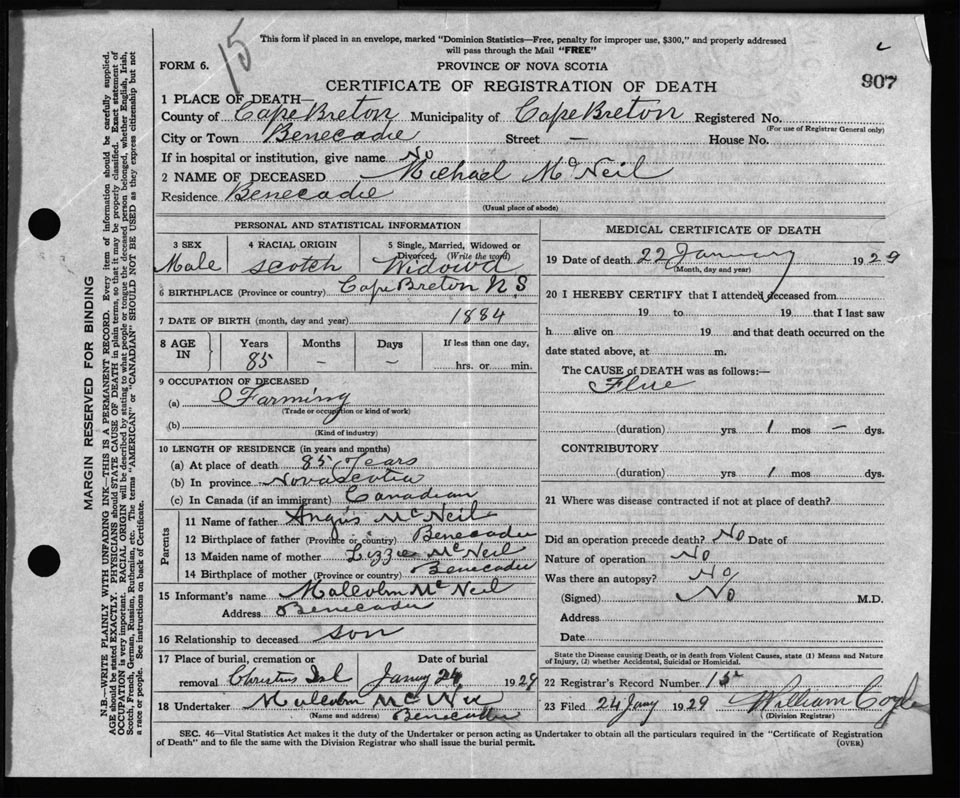 15
This form if placed in an envelope, marked "Dominion Statistics—Free, penalty for improper use, $300," and properly addressed
will pass through the Mail "FREE"
FORM 6.
PROVINCE OF NOVA SCOTIA
907
CERTIFICATE OF REGISTRATION OF DEATH
1 PLACE OF DEATH—
County of Cape Breton Municipality of Cape Breton Registered No.
(For use of Registrar General only)
City or Town Benecadie Street — House No.
If in hospital or institution, give name No
2 NAME OF DECEASED Michael McNeil
Residence Benecadie
(Usual place of abode)
PERSONAL AND STATISTICAL INFORMATION
3 SEX 4 RACIAL ORIGIN 5 Single, Married, Widowed or
Divorced. (Write the word)
Male Scotch Widowd
6 BIRTHPLACE (Province or country) Cape Breton N.S
7 DATE OF BIRTH (month, day and year) 1884
8 AGE IN Years Months Days If less than one day,
85 — — hrs. or min.
9 OCCUPATION OF DECEASED
(a) Farming
(Trade or occupation or kind of work)
(b)
(Kind of industry)
10 LENGTH OF RESIDENCE (in years and months)
(a) At place of death 85 Years
(b) In province Nova Scotia
(c) In Canada (if an immigrant) Canadian
Parents
11 Name of father Angus McNeil
12 Birthplace of father (Province or country) Benecadie
13 Maiden name of mother Lizzie McNeil
14 Birthplace of mother (Province or country) Benecadie
15 Informant's name Malcolm McNeil
Address Benecadie
16 Relationship to deceased son
17 Place of burial, cremation or Date of burial
removal Christms Isl 24 1929
18 Undertaker Malcolm
(Name and address) Benecadie
MEDICAL CERTIFICATE OF DEATH
19 Date of death 22 January 1929
(Month, day and year)
20 I HEREBY CERTIFY that I attended deceased from
19 to 19 that I last saw
h alive on 19 and that death occurred on the
date stated above, at m.
The CAUSE of DEATH was as follows:—
Flue
(duration) yrs 1 mos — dys.
CONTRIBUTORY
(duration) yrs 1 mos dys.
21 Where was disease contracted if not at place of death?
Did an operation precede death? No Date of
Nature of operation No
Was there an autopsy? No
(Signed) No M.D.
Address
Date
State the Disease causing Death, or in death from Violent Causes, state (1) Means and Nature
of Injury, (2) whether Accidental, Suicidal or Homicidal.
22 Registrar's Record Number
23 Filed 24 Jany 1929 William
(Division Registrar)
SEC. 46—Vital Statistics Act makes it the duty of the Undertaker or person acting as Undertaker to obtain all the particulars required in the "Certificate of Registration
of Death" and to file the same with the Division Registrar who shall issue the burial permit. (OVER)
MARGIN RESERVED FOR BINDING
N.B.—WRITE PLAINLY WITH UNFADING INK—THIS IS A PERMANENT RECORD. Every item of information should be carefully supplied.
AGE should be stated EXACTLY. PHYSICIANS should STATE CAUSE OF DEATH in plain terms, so that it may be properly classified. Exact statement of
OCCUPATION is very important. RACIAL ORIGIN will be described by stating to what people or tongue the deceased person belonged, whether English, Irish,
Scotch, French, German, Russian, Ruthenian, etc. The terms "AMERICAN" or "CANADIAN" SHOULD NOT BE USED as they express citizenship but not
a race or people. See instructions on back of Certificate.